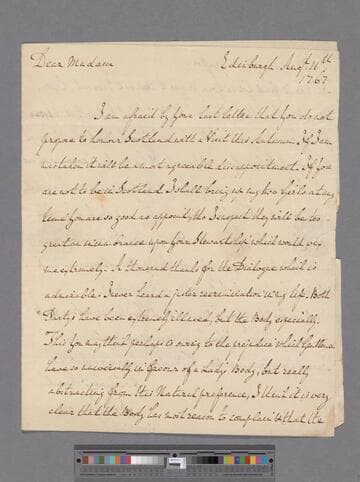 Dear Madam
Edinburgh Augt. 11th
1767
I am afraid by your last letter that you do not
propose to honour Scotland with a Visit this Autumn. If I am
mistaken it will be a most agreeable disappointment. If you
are not to be in Scotland I shall bring up my two girls at any
time you are so good as appoint, tho I suspect they will be too
great an incumbrance upon your Stewardship which would vex
me extremely. A thousand thanks for the Dialogue which is
admirable. I never heard a juster recrimination in my life. Both
Partys have been extremely ill used, but the Body especially.
This you may think perhaps is owing to the prejudice which Gentlemen
have so universally in favour of a Ladys Body, but really
abstracting from this Natural preference, I think it is very
clear that the Body has most reason to complain & that the